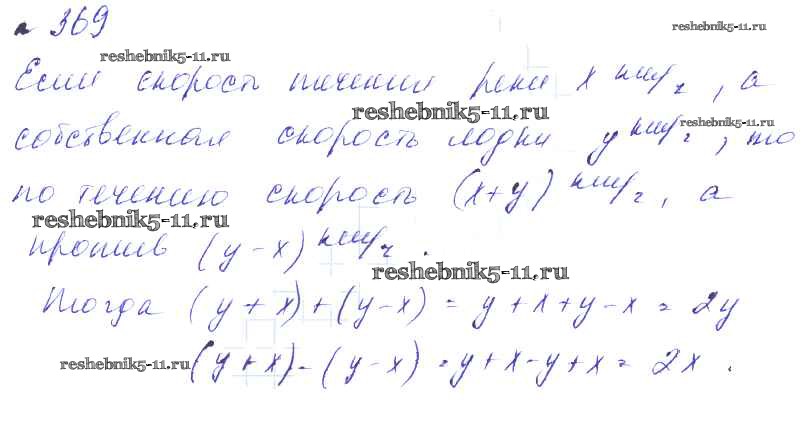 № 369
reshebnik5-11.ru
reshebnik5-11.ru
Если скорость течения реки x км/ч, а
reshebnik5-11.ru
reshebnik5-11.ru
собственная скорость лодки y км/ч, то
по течению скорость (x+y) км/ч, а
reshebnik5-11.ru
против (y-x) км/ч.
reshebnik5-11.ru
Тогда (y+x)+(y-x) = y+x+y-x = 2y
reshebnik5-11.ru
(y+x)-(y-x) = y+x-y+x = 2x.